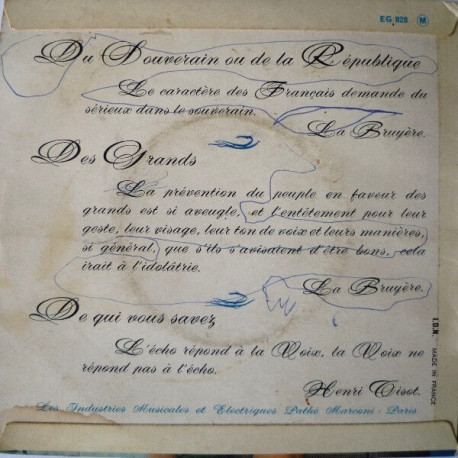 EG 828 M
Du Souverain ou de la République
Le caractère des Français demande du
sérieux dans le souverain.
La Bruyère.
Des Grands
La prévention du peuple en faveur des
grands est si aveugle, et l'entêtement pour leur
geste, leur visage, leur ton de voix et leurs manières,
si général, que s'ils s'avisaient d'être bons, cela
irait à l'idolâtrie.
La Bruyère.
De qui vous savez
L'écho répond à la Voix, la Voix ne
répond pas à l'écho.
Henri Tisot.
Les Industries Musicales et Electriques Pathé Marconi - Paris
I.D.N. MADE IN FRANCE